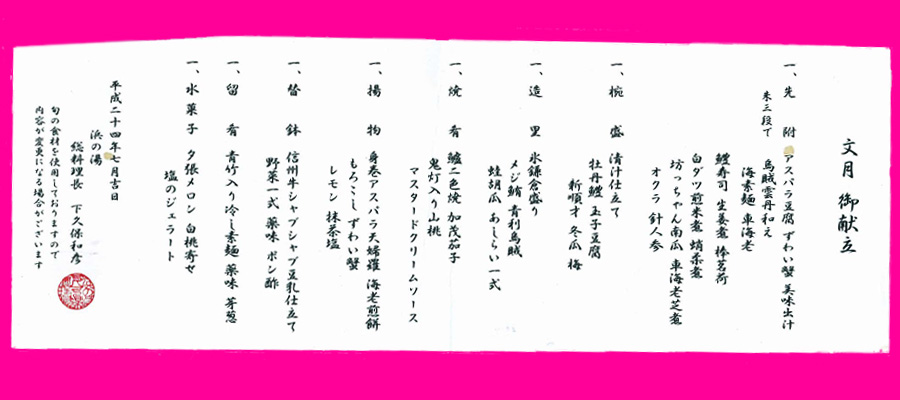 文月 御献立
一、先附 アスパラ豆腐 ずわい蟹 美味出汁
朱三段で 烏賊雲丹和え
海素麺 車海老
鱧寿司 生姜煮 棒茗荷
白ダツ煎米煮 蛸柔煮
坊っちゃん南瓜 車海老芝煮
オクラ 針人参
一、椀盛 清汁仕立て
牡丹鱧 玉子豆腐
新順才 冬瓜 梅
一、造里 氷鎌倉盛り
メジ鮪 青利烏賊
蛙胡瓜 あしらい一式
一、焼肴 鱸二色焼 加茂茄子
鬼灯入り山桃
マスタードクリームソース
一、揚物 身巻アスパラ天婦羅 海老煎餅
もろこし ずわい蟹
レモン 抹茶塩
一、替鉢 信州牛シャブシャブ豆乳仕立て
野菜一式 薬味 ポン酢
一、留肴 青竹入り冷し素麺 薬味 芽葱
一、水菓子 夕張メロン 白桃寄せ
塩のジェラート
平成二十四年七月吉日
浜の湯
総料理長 下久保和彦
旬の食材を使用しておりますので
内容が変更になる場合がございます